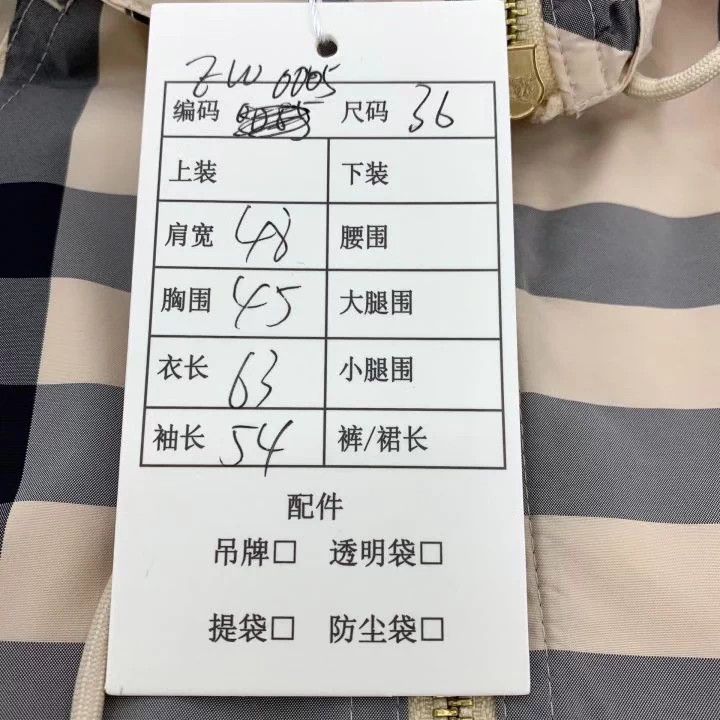 ZW 0005
编码 尺码 36
上装 下装
肩宽 48 腰围
胸围 45 大腿围
衣长 63 小腿围
袖长 54 裤/裙长
配件
吊牌□ 透明袋□
提袋□ 防尘袋□